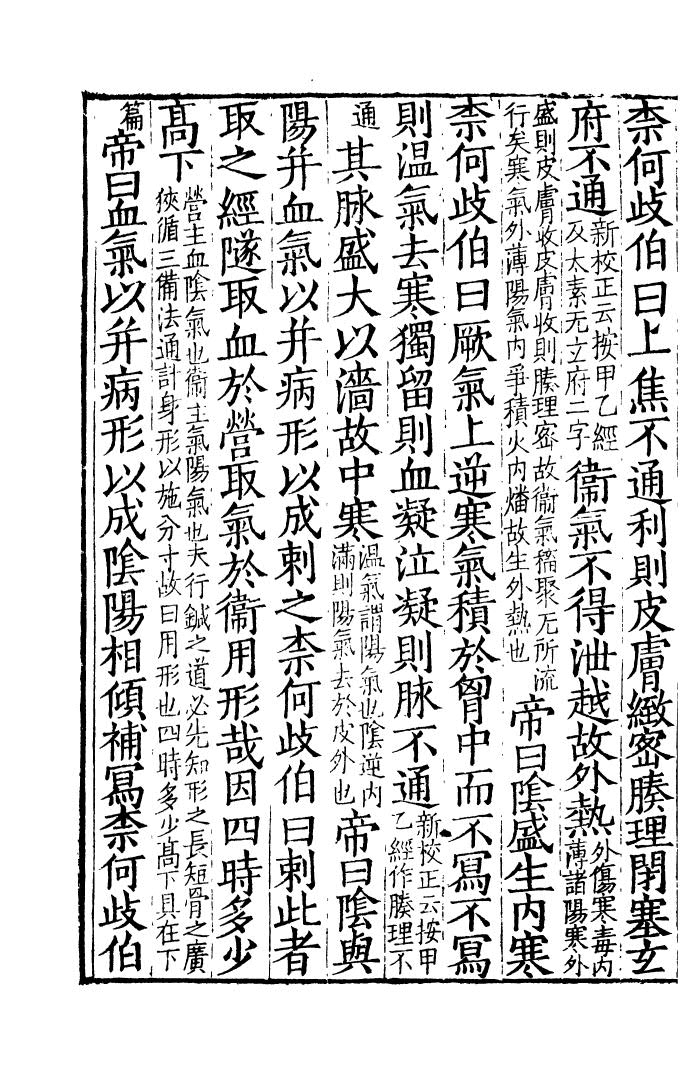 柰何歧伯曰上焦不通利則皮膚緻密腠理閉塞玄
府不通新校正云按甲乙經及太素无玄府二字衞氣不得泄越故外熱外傷寒毒内薄諸陽寒外
盛則皮膚收皮膚收則腠理密故衞氣穡聚无所流行矣寒氣外薄陽氣内爭積火内燔故生外熱也帝曰陰盛生内寒
柰何歧伯曰厥氣上逆寒氣積於胷中而不寫不寫
則温氣去寒獨留則血凝泣凝則脉不通新校正云按甲乙經作腠理不
通其脉盛大以濇故中寒温氣謂陽氣也陰逆内滿則陽氣去於皮外也帝曰陰與
陽并血氣以并病形以成刺之柰何歧伯曰刺此者
取之經隧取血於營取氣於衞用形哉因四時多少
髙下營主血陰氣也衞主氣陽氣也夫行鍼之道必先知形之長短骨之廣狹循三備法通計身形以施分寸故曰用形也四時多少髙下具在下
篇帝曰血氣以并病形以成陰陽相傾補寫柰何歧伯